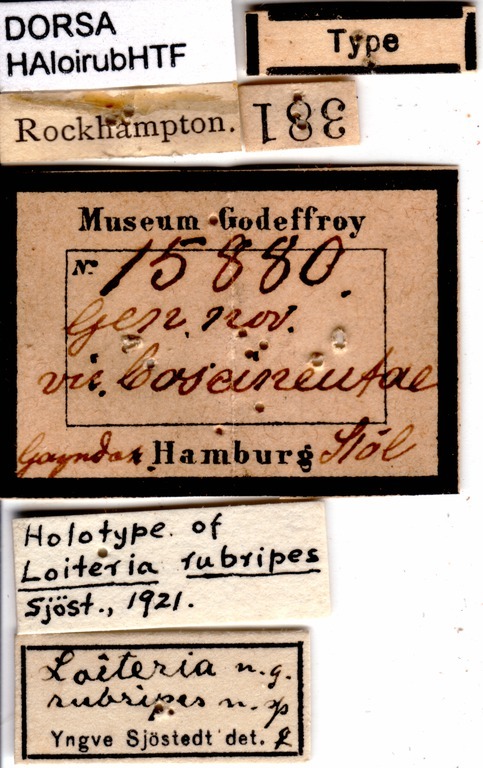 DORSA
HAloirubHTF
Type
Rockhampton.
381
Museum Godeffroy
No. 15880.
Gen. nov.
vic. Coscineutae
Gayndah Hamburg Stål
Holotype of
Loiteria rubripes
Sjöst., 1921.
Loiteria n.g.
rubripes n. sp
Yngve Sjöstedt det.